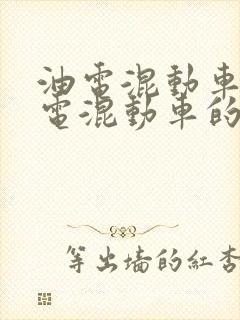 油電混動車
電混動車的
等出墻的紅杏